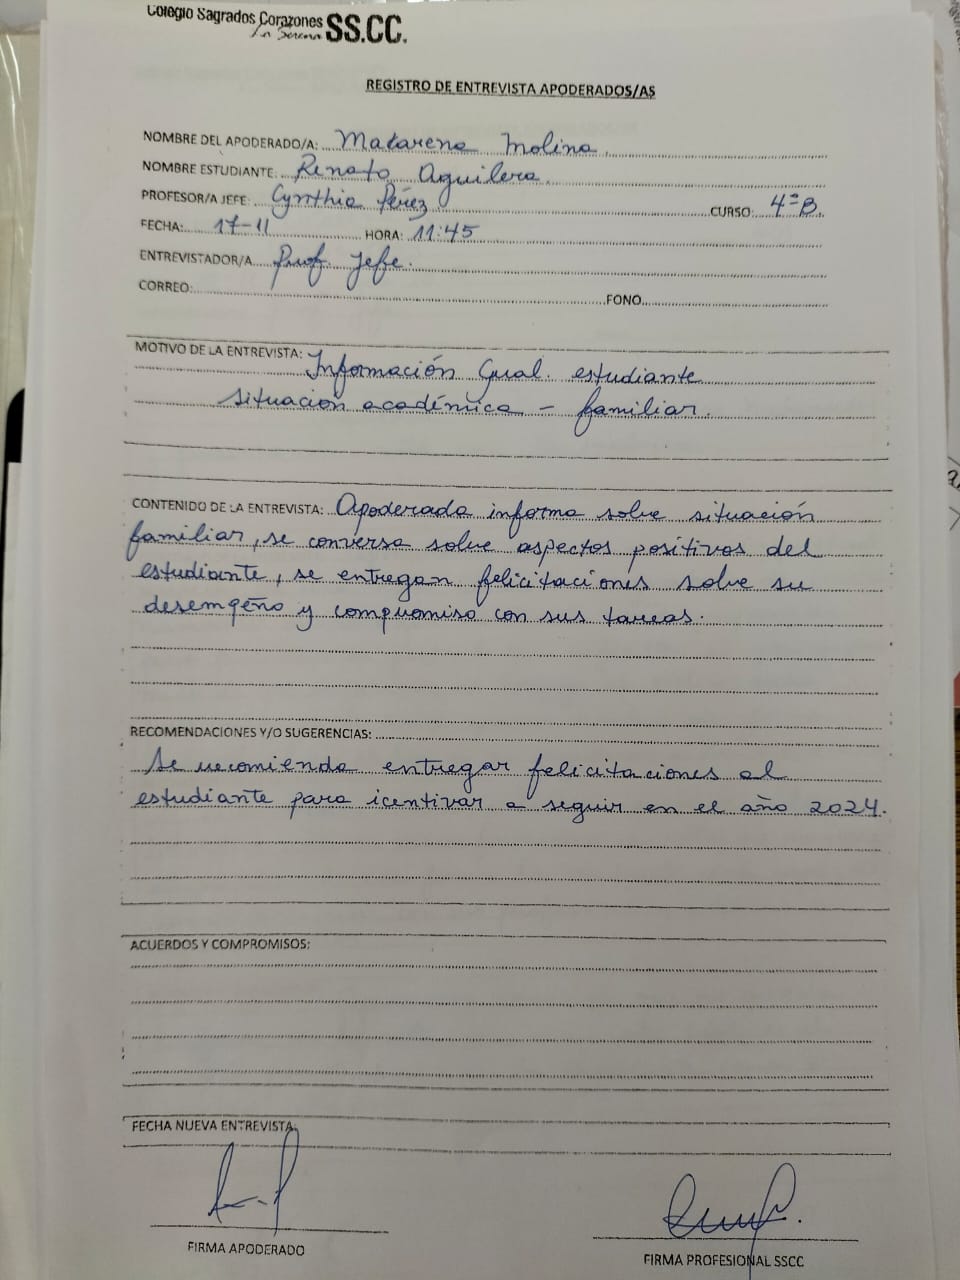 Colegio Sagrados Corazones SS.CC.
La Serena
REGISTRO DE ENTREVISTA APODERADOS/AS
NOMBRE DEL APODERADO/A: Makarena Molina
NOMBRE ESTUDIANTE: Renato Aguilera
PROFESOR/A JEFE: Cynthia Pérez CURSO: 4ºB.
FECHA: 17-11 HORA: 11:45
ENTREVISTADOR/A Prof. Jefe.
CORREO: FONO
MOTIVO DE LA ENTREVISTA: Información Gral. estudiante
situación académica - familiar.
CONTENIDO DE LA ENTREVISTA: Apoderada informa sobre situación
familiar, se conversa sobre aspectos positivos del
estudiante, se entregan felicitaciones sobre su
desempeño y compromiso con sus tareas.
RECOMENDACIONES Y/O SUGERENCIAS:
Se recomienda entregar felicitaciones al
estudiante para icentivar a seguir en el año 2024.
ACUERDOS Y COMPROMISOS:
FECHA NUEVA ENTREVISTA:
FIRMA APODERADO
FIRMA PROFESIONAL SSCC